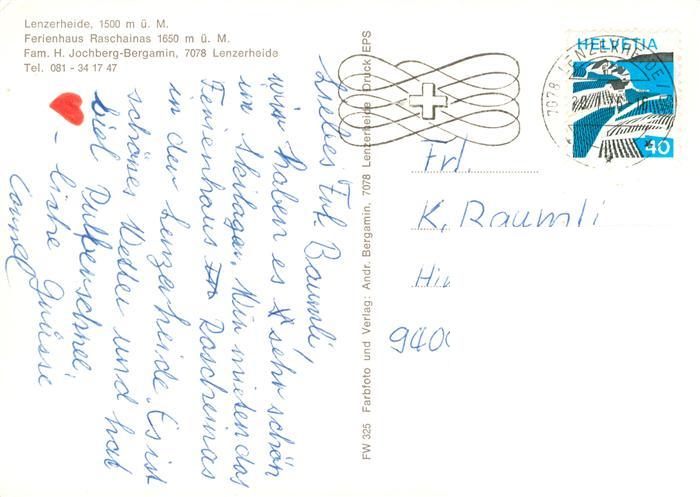 Lenzerheide, 1500 m ü. M.
Ferienhaus Raschainas 1650 m ü. M.
Fam. H. Jochberg-Bergamin, 7078 Lenzerheide
Tel. 081 - 34 17 47
Liebes Frl. Baumli,
wir haben es sehr schön
im Skilager. Wir mieten das
Ferienhaus Rascheinas
in der Lenzerheide. Es ist
schönes Wetter und hat
viel Pulverschnee.
liebe Grüsse
FW 325 Farbfoto und Verlag: Andr. Bergamin, 7078 Lenzerheide Druck EPS
HELVETIA
40
7078 LENZERHEIDE
Frl.
K. Raumli
Hi
940